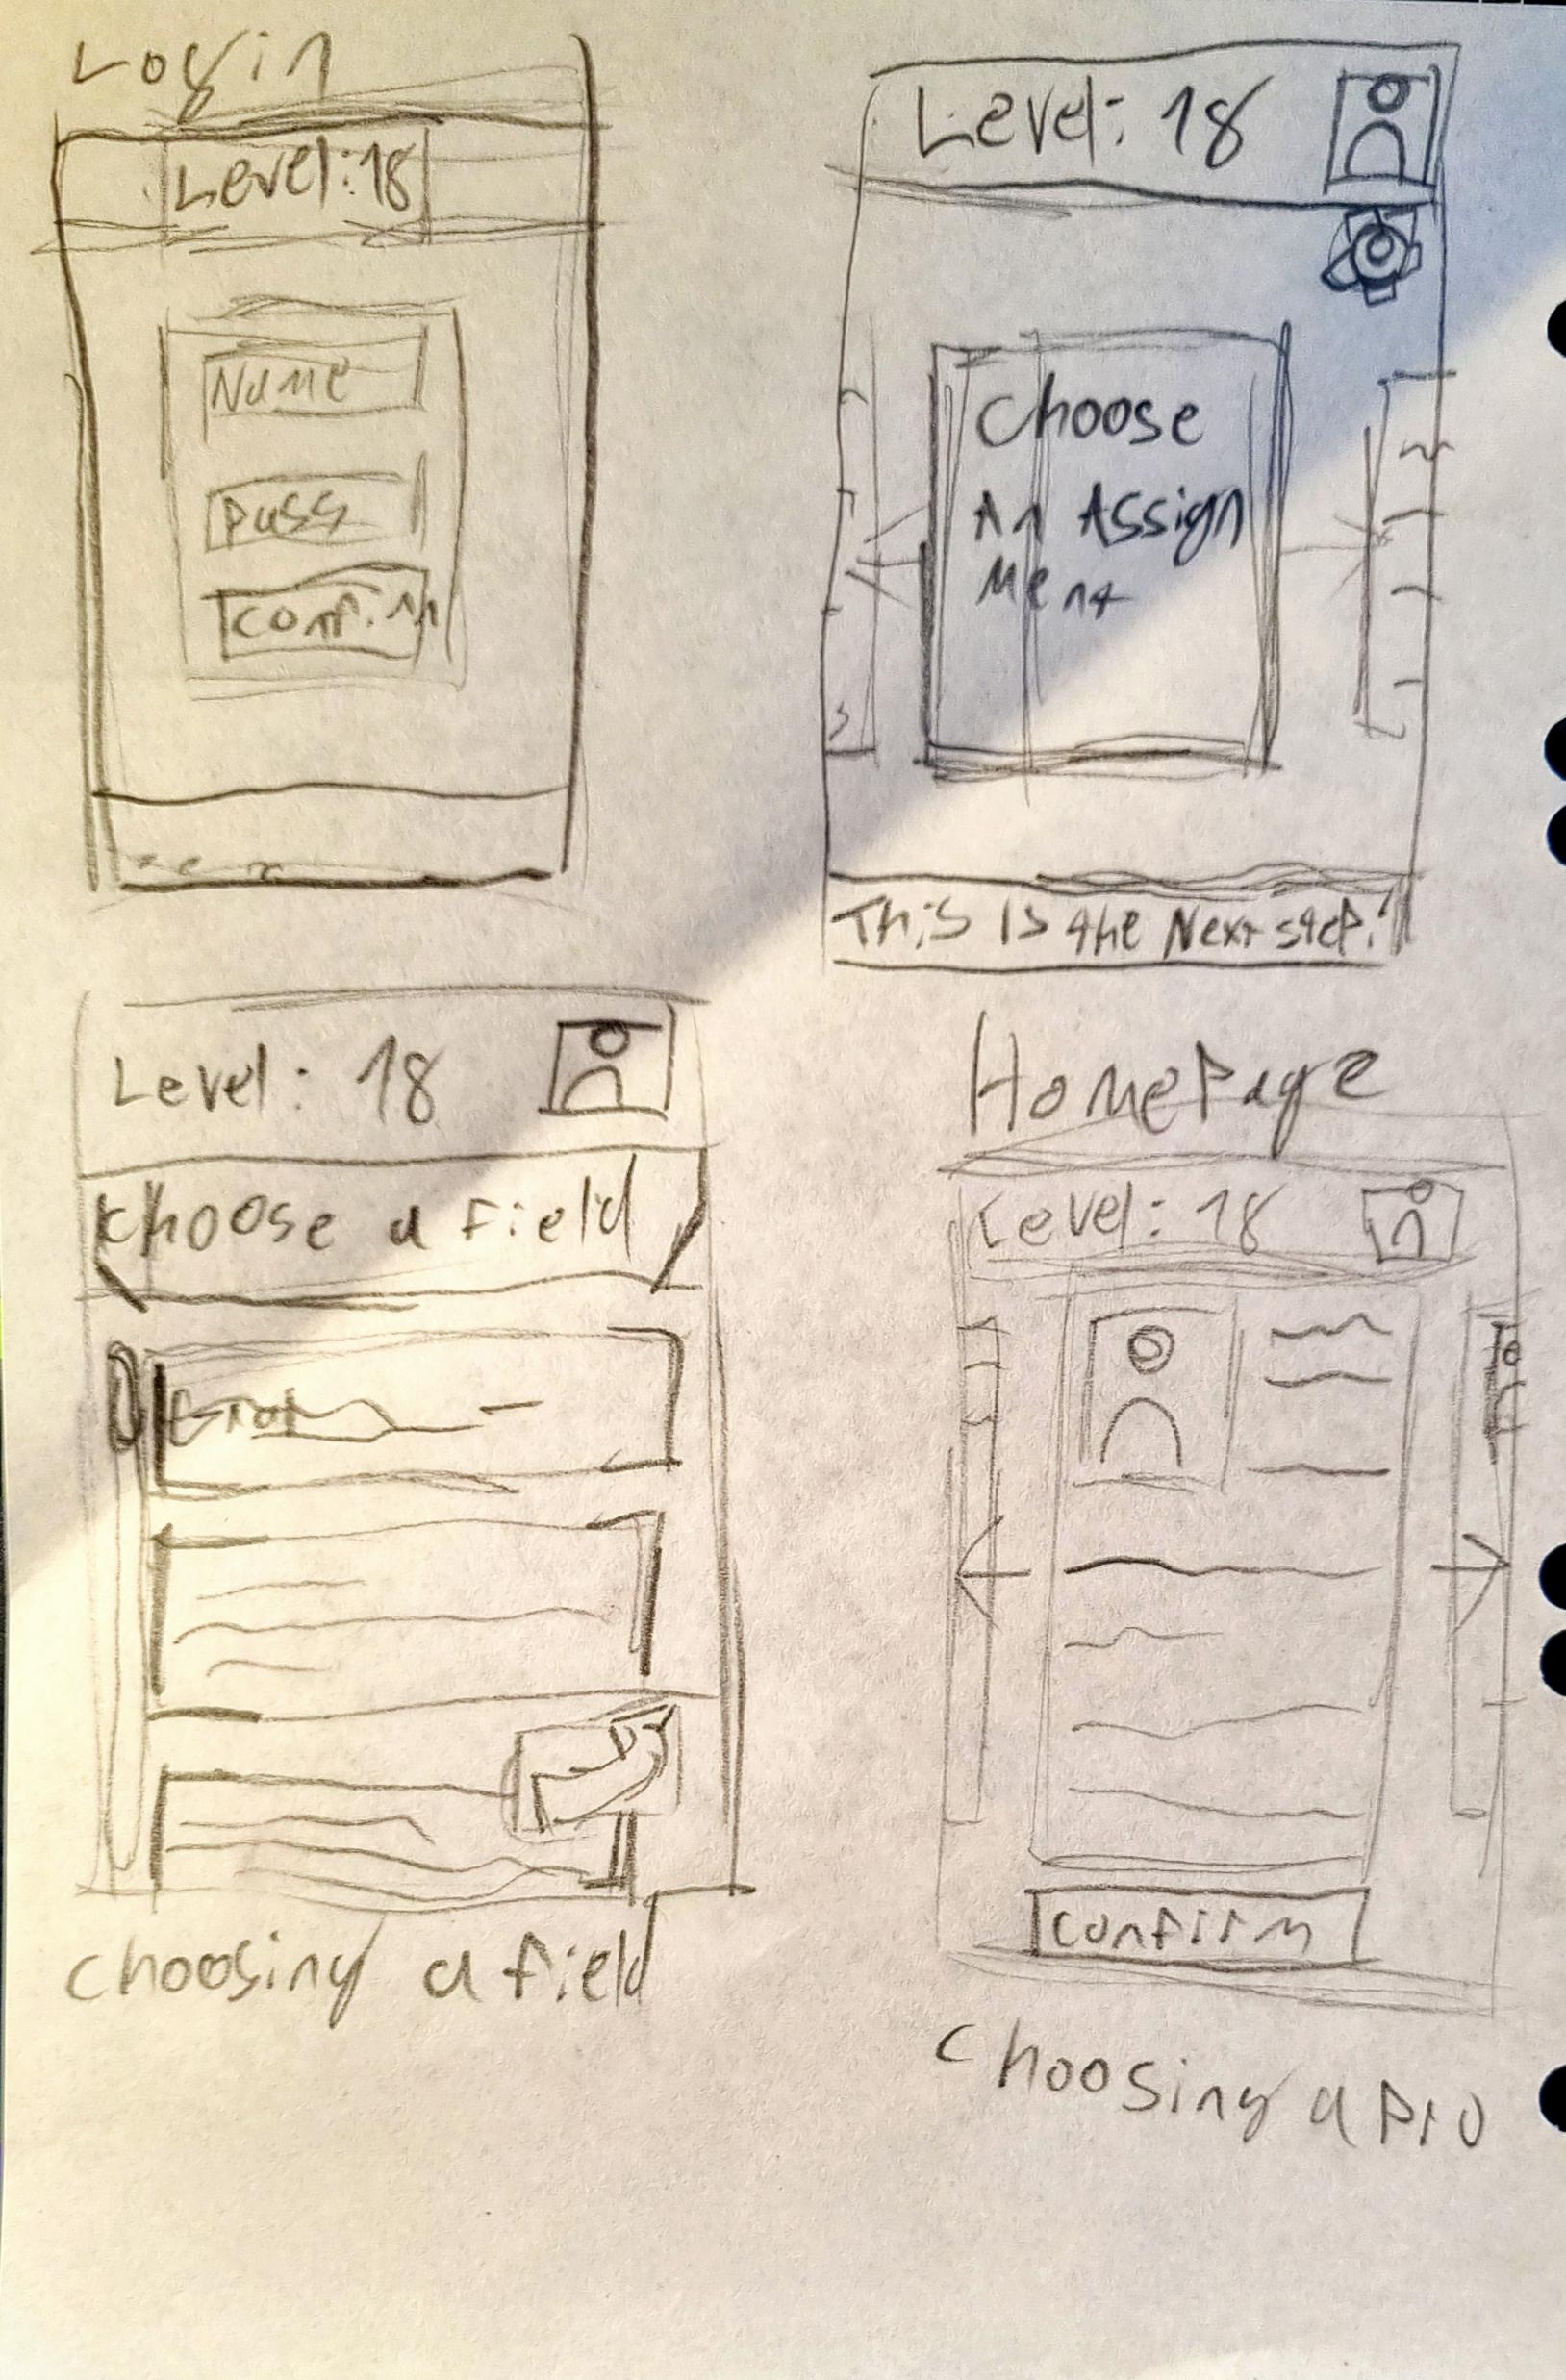 Login
Level: 18
Name
Pass
Confirm
Level: 18
Choose
An Assign
Ment
This is the Next step!
Level: 18
Choose a field
Choosing a field
HomePage
Level: 18
Confirm
Choosing a Pro